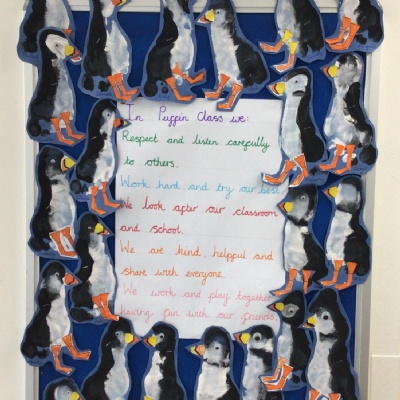 In Puffin Class we:
Respect and listen carefully
to others.
Work hard and try our best
We look after our classroom
and school.
We are kind, helpful and
share with everyone.
We work and play together
having fun with our friends.